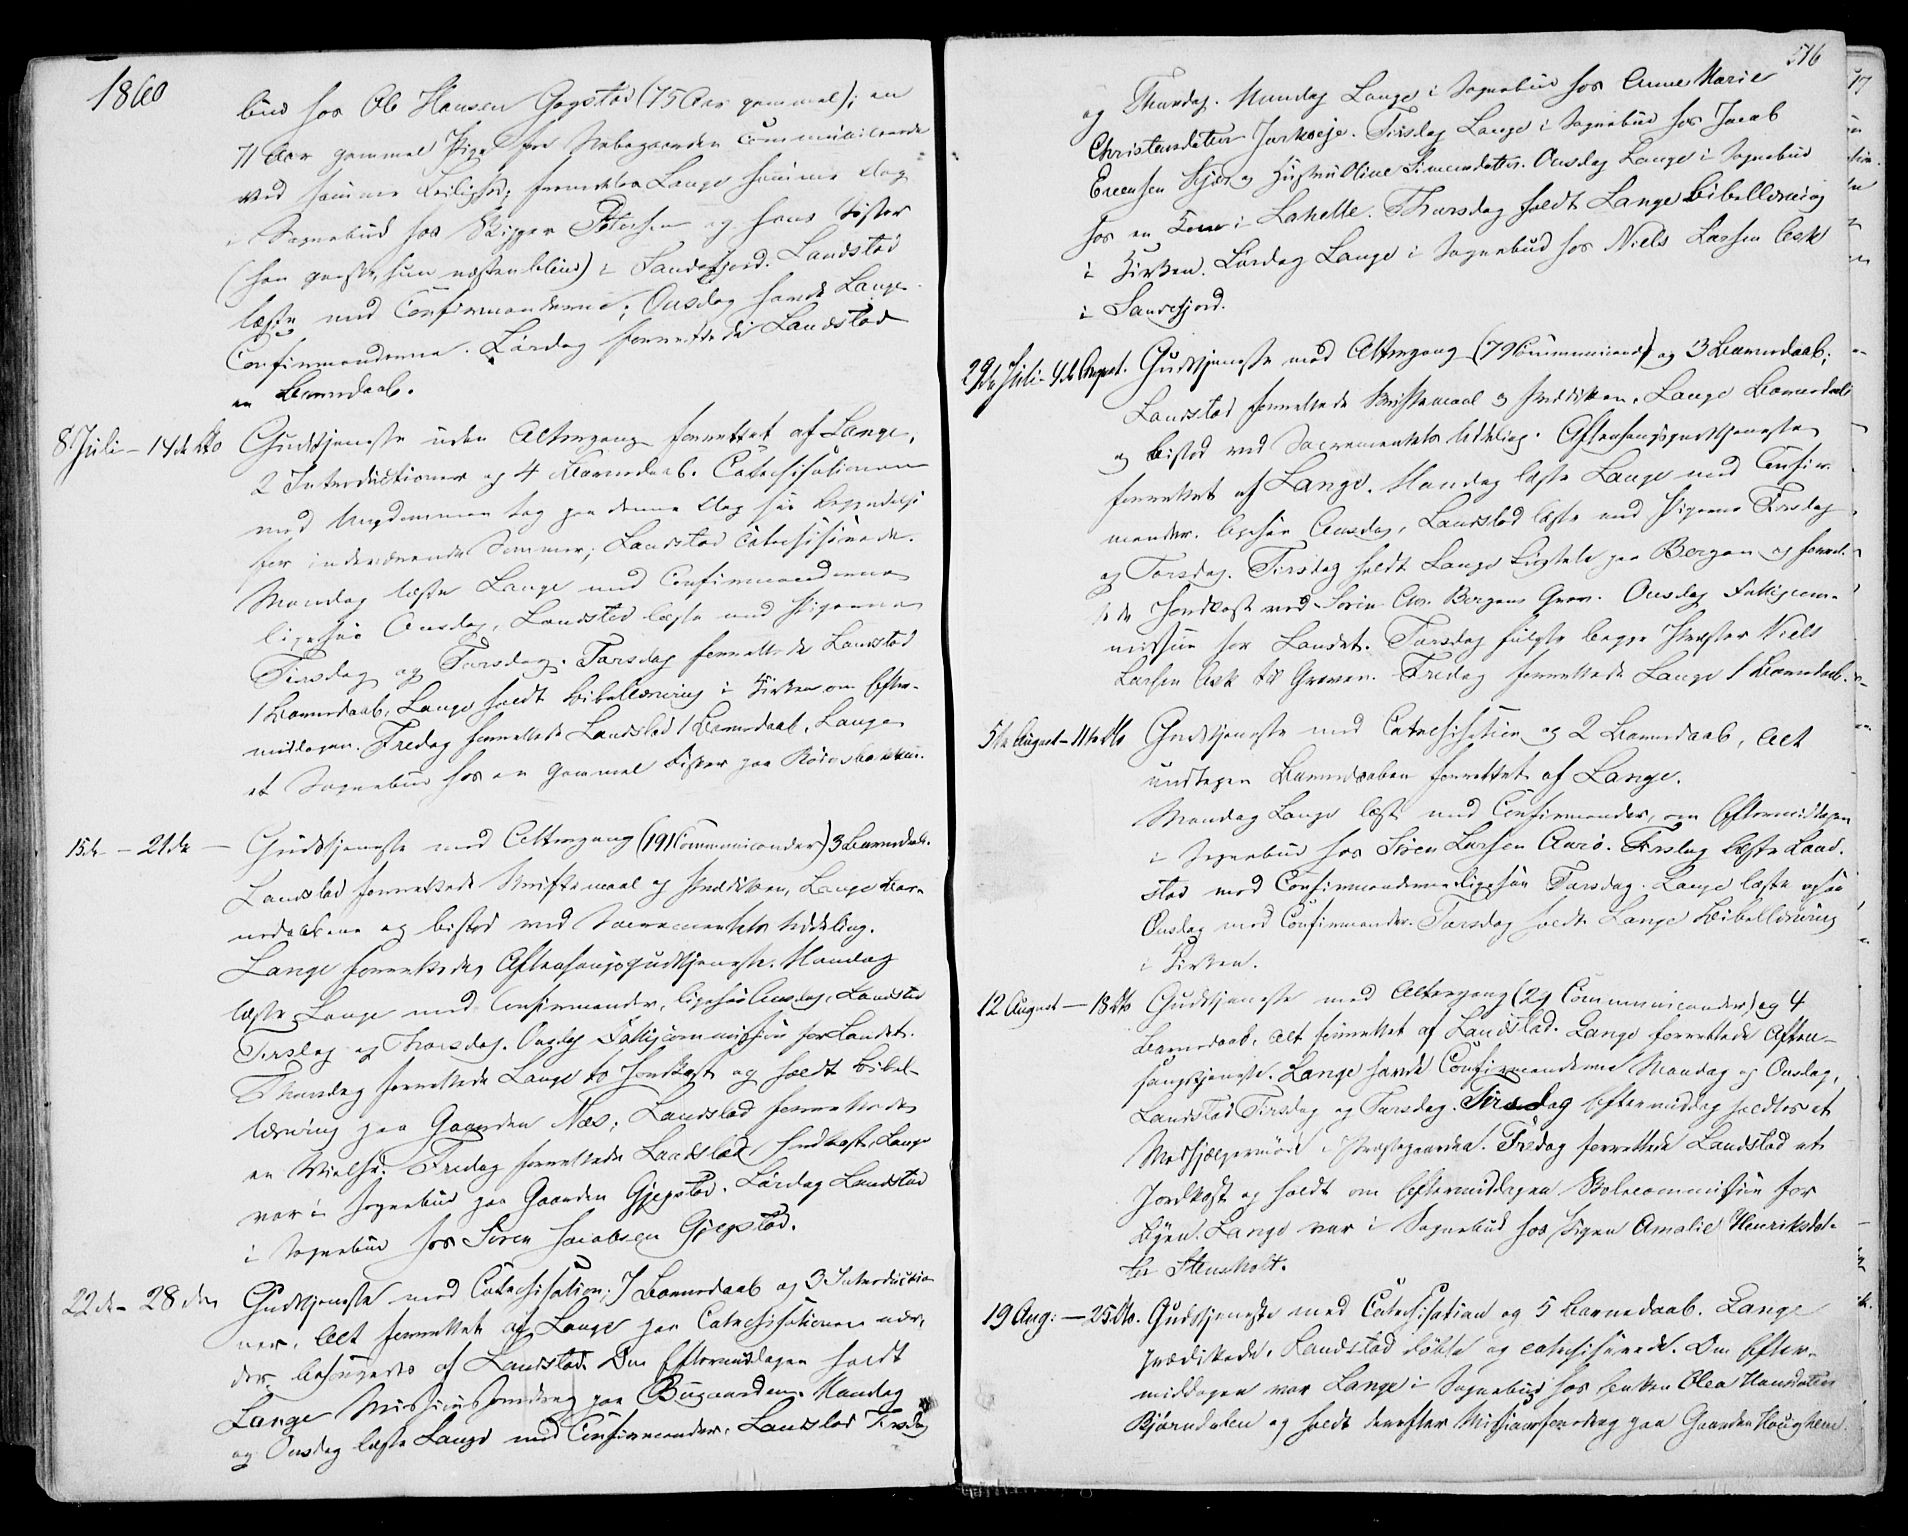 1860
bud hos Ole Hansen Gogstad (75 Aar gammel); en
71 Aar gammel Pige fra Nabogaarden communicerede
ved samme Leilighed; fremdeles Lange samme Dag
i Sognebud hos Skipper Petersen og hans Søster
(han genstr, hun næsten blind) i Sandefjord. Landstad
læste med Confirmanderne; Onsdag havde Lange
Confirmanderne. Lørdag forrettede Landstad
en Barnedaab.
8 Juli – 14de do Gudstjeneste uden Altergang forrettet af Lange,
2 Introductioner og 4 Barnedaab. Catechisationen
med Ungdommen tog paa denne Dag sin Begyndelse
for indeværende Sommer; Landstad catechiserede.
Mandag læste Lange med Confirmanderne
ligesaa Onsdag, Landstad læste med Pigerne
Tirsdag og Torsdag. Torsdag forrettede Landstad
1 Barnedaab, Lange holdt Bibellæsning i Kirken om Efter-
middagen. Fredag forrettede Landstad 1 Barnedaab, Lange
et Sognebud hos en gammel Fisker paa
15de – 21de – Gudstjeneste med Altergang (191 Communicanter) 3 Barnedaab.
Landstad forrettede Skriftemaal og Prædiken, Lange Bar-
nedaabene og bistod ved Sacramentets Uddeling.
Lange forrettede Aftensangsgudstjeneste. Mandag
læste Lange med Confirmander, ligesaa Onsdag, Landstad
Tirsdag og Thorsdag. Onsdag Fattigcommission for Landet.
Thorsdag forrettede Lange to Jordkast og holdt Bibel-
læsning paa Gaarden Næs; Landstad forrettede
en Vielse. Fredag forrettede Landstad Jordkast, Lange
var i Sognebud paa Gaarden Gjegstad. Lørdag Landstad
i Sognebud hos Søren Jacobsen Gjegstad.
22de – 28de Gudstjeneste med Catechisation; 7 Barnedaab og 3 Introductio-
ner. Alt forrettet af Lange paa Catechisationen nær,
der besørgedes af Landstad. Om Eftermiddagen holdt
Lange Missionsforedrag paa Bugaarden. Mandag
og Onsdag læste Lange med Confirmander, Landstad Tirsdag
516
og Thorsdag. Mandag Lange i Sognebud hos Anne Marie
Christensdatter Tirsdag Lange i Sognebud hos Jacob
Evensen og Simensdatter. Onsdag Lange i Sognebud
hos en Kone i Lahelle. Thorsdag holdt Lange Bibellæsning
i Kirken. Lørdag Lange i Sognebud hos Niels Larsen Ask
i Sandefjord.
29de Juli – 4de August. Gudstjeneste med Altergang (79 Communicanter) og 3 Barnedaab;
Landstad forrettede Skriftemaal og Prædiken, Lange Barnedaab
og bistod ved Sacramentets Uddeling. Aftensangsgudstjeneste
forrettet af Lange. Mandag læste Lange med Confir-
mander, ligesaa Onsdag, Landstad læste med Pigerne Tirsdag
og Torsdag. Tirsdag holdt Lange Ligtale paa Bergan og forret-
tede Jordkast ved Søren Chr. Bergans Grav. Onsdag Fattigcom-
mission for Landet. Torsdag fulgte begge Præster Niels
Larsen Ask til Graven. Fredag forrettede Lange 1 Barnedaab.
5te August – 11te do Gudstjeneste med Catechisation og 2 Barnedaab, Alt
undtagen Barnedaaben forrettet af Lange.
Mandag Lange læste med Confirmander, om Eftermiddagen
i Sognebud hos Søren Larsen Aarø. Tirsdag læste Land-
stad med Confirmanderne ligesaa Torsdag. Lange læste ogsaa
Onsdag med Confirmander. Torsdag holdt Lange Bibellæsning
i Kirken.
12 August – 18 do Gudstjeneste med Altergang (29 Communicanter) og 4
Barnedaab, Alt forrettet af Landstad. Lange forrettede Aften-
sangstjeneste. Lange havde Confirmanderne Mandag og Onsdag,
Landstad Tirsdag og Torsdag. Tirsdag Eftermiddag holdtes et
Medhjælpermøde i Præstegaarden. Fredag forrettede Landstad et
Jordkast og holdt om Eftermiddagen Skolecommission for
Byen. Lange var i Sognebud hos Pigen Amalie Henriksdat-
ter Stensholt.
19 Aug: – 25 do. Gudstjeneste med Catechisation og 5 Barnedaab. Lange
prædikede, Landstad døbte og catechiserede. Om Efter-
middagen var Lange i Sognebud hos Enken Olea Hansdatter
Bjørndalen og holdt derefter Missionsforedrag paa Gaarden Haughem.